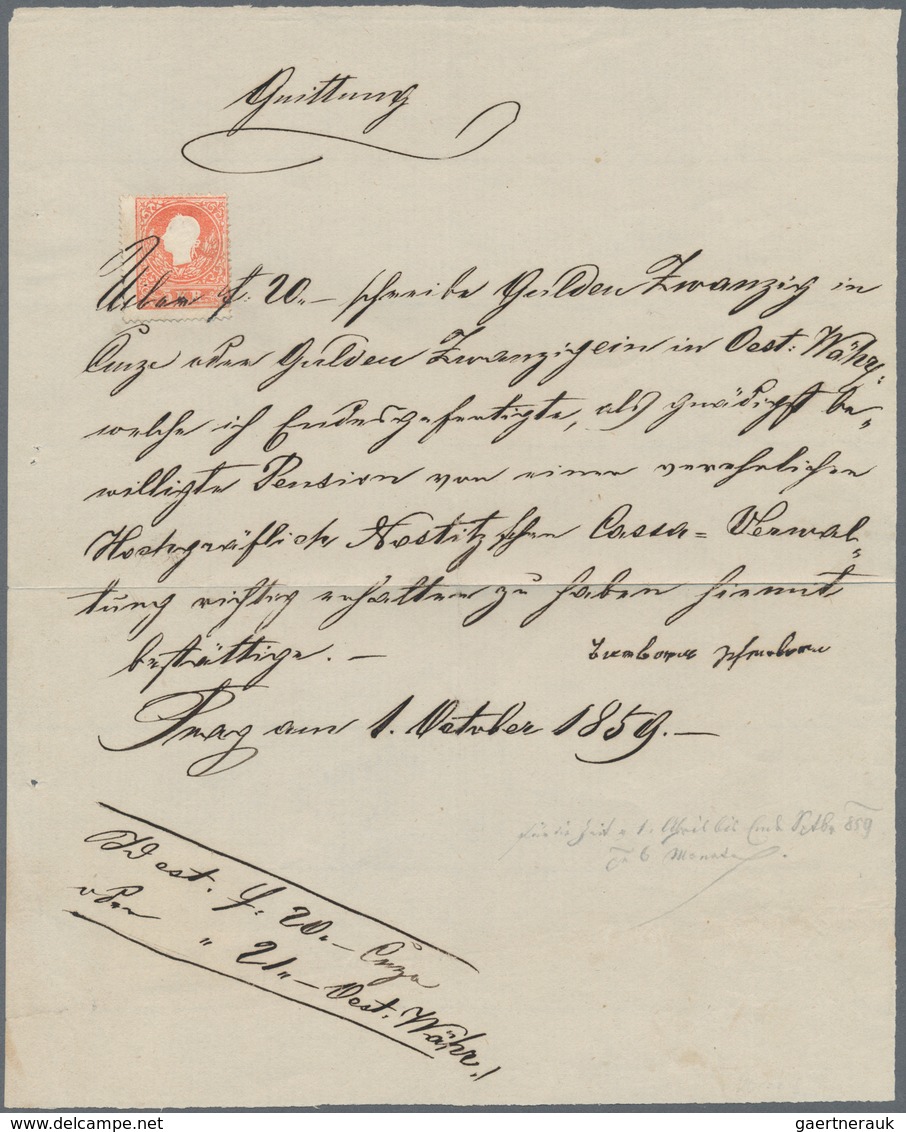 Quittung
Ueber f: 20 „– schreibe Gulden Zwanzig in
Cmze oder Gulden Zwanzigein in Oest: Währ:
welche ich Endesgefertigte, als gnädigst be-
willigte Pension von einer verehrlichen
Hochgräflich Nostitz'schen Cassa = Verwal-
tung richtig erhalten zu haben hiemit
bestättige. –
Prag am 1. October 1859. –
1. bis Ende Septbr 859
6 Monate
Id est. f: 20 „– Cmze
oder " 21 „– Oest: Währ:/
gaertnerauk